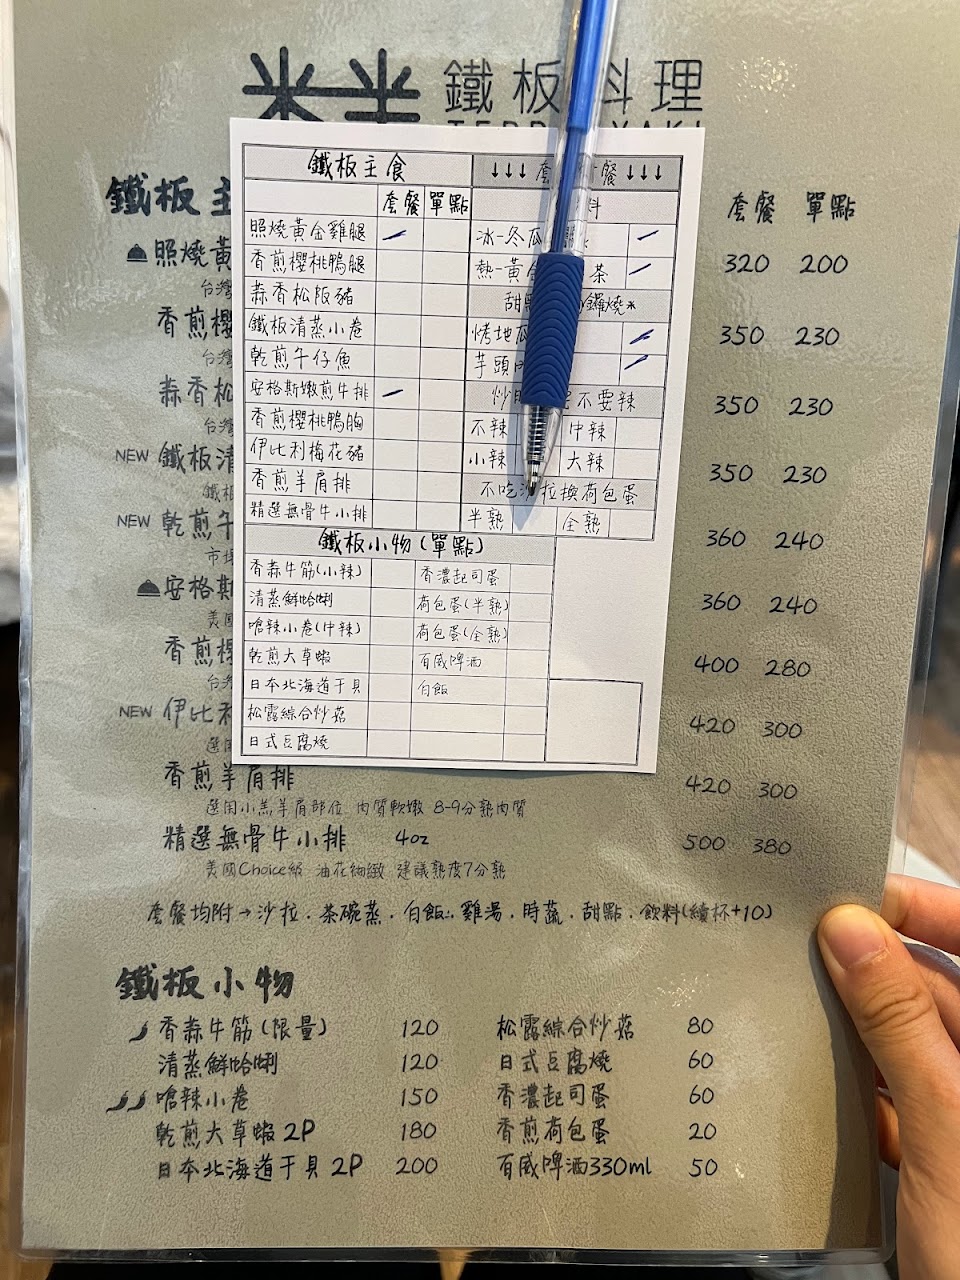 米半 鐵板料理
鐵板主食
套餐 單點
照燒黃金雞腿
香煎櫻桃鴨腿
蒜香松阪豬
鐵板清蒸小卷
乾煎午仔魚
安格斯嫩煎牛排
香煎櫻桃鴨胸
伊比利梅花豬
香煎羊肩排
精選無骨牛小排
↓↓↓ 套 餐 ↓↓↓
料
冰-冬瓜
熱-黃金 茶
甜點 燒
烤地瓜
芋頭
炒 不要辣
不辣 中辣
小辣 大辣
不吃沙拉換荷包蛋
半熟 全熟
鐵板小物(單點)
香蒜牛筋(小辣) 香濃起司蛋
清蒸鮮蛤蜊 荷包蛋(半熟)
嗆辣小卷(中辣) 荷包蛋(全熟)
乾煎大草蝦 百威啤酒
日本北海道干貝 白飯
松露綜合炒菇
日式豆腐燒
鐵板主 套餐 單點
照燒黃 320 200
台灣
香煎櫻 350 230
台灣
蒜香松 350 230
台灣
NEW 鐵板清 350 230
NEW 乾煎午 360 240
市場
安格斯 360 240
美國
香煎櫻 400 280
台灣
NEW 伊比利 420 300
選用
香煎羊肩排 420 300
選用小羔羊肩部位 肉質軟嫩 8-9分熟肉質
精選無骨牛小排 4oz 500 380
美國Choice級 油花細緻 建議熟度7分熟
套餐均附→沙拉.茶碗蒸.白飯.雞湯.時蔬.甜點.飲料(續杯+10)
鐵板小物
香蒜牛筋(限量) 120 松露綜合炒菇 80
清蒸鮮蛤蜊 120 日式豆腐燒 60
嗆辣小卷 150 香濃起司蛋 60
乾煎大草蝦2P 180 香煎荷包蛋 20
日本北海道干貝2P 200 百威啤酒330ml 50